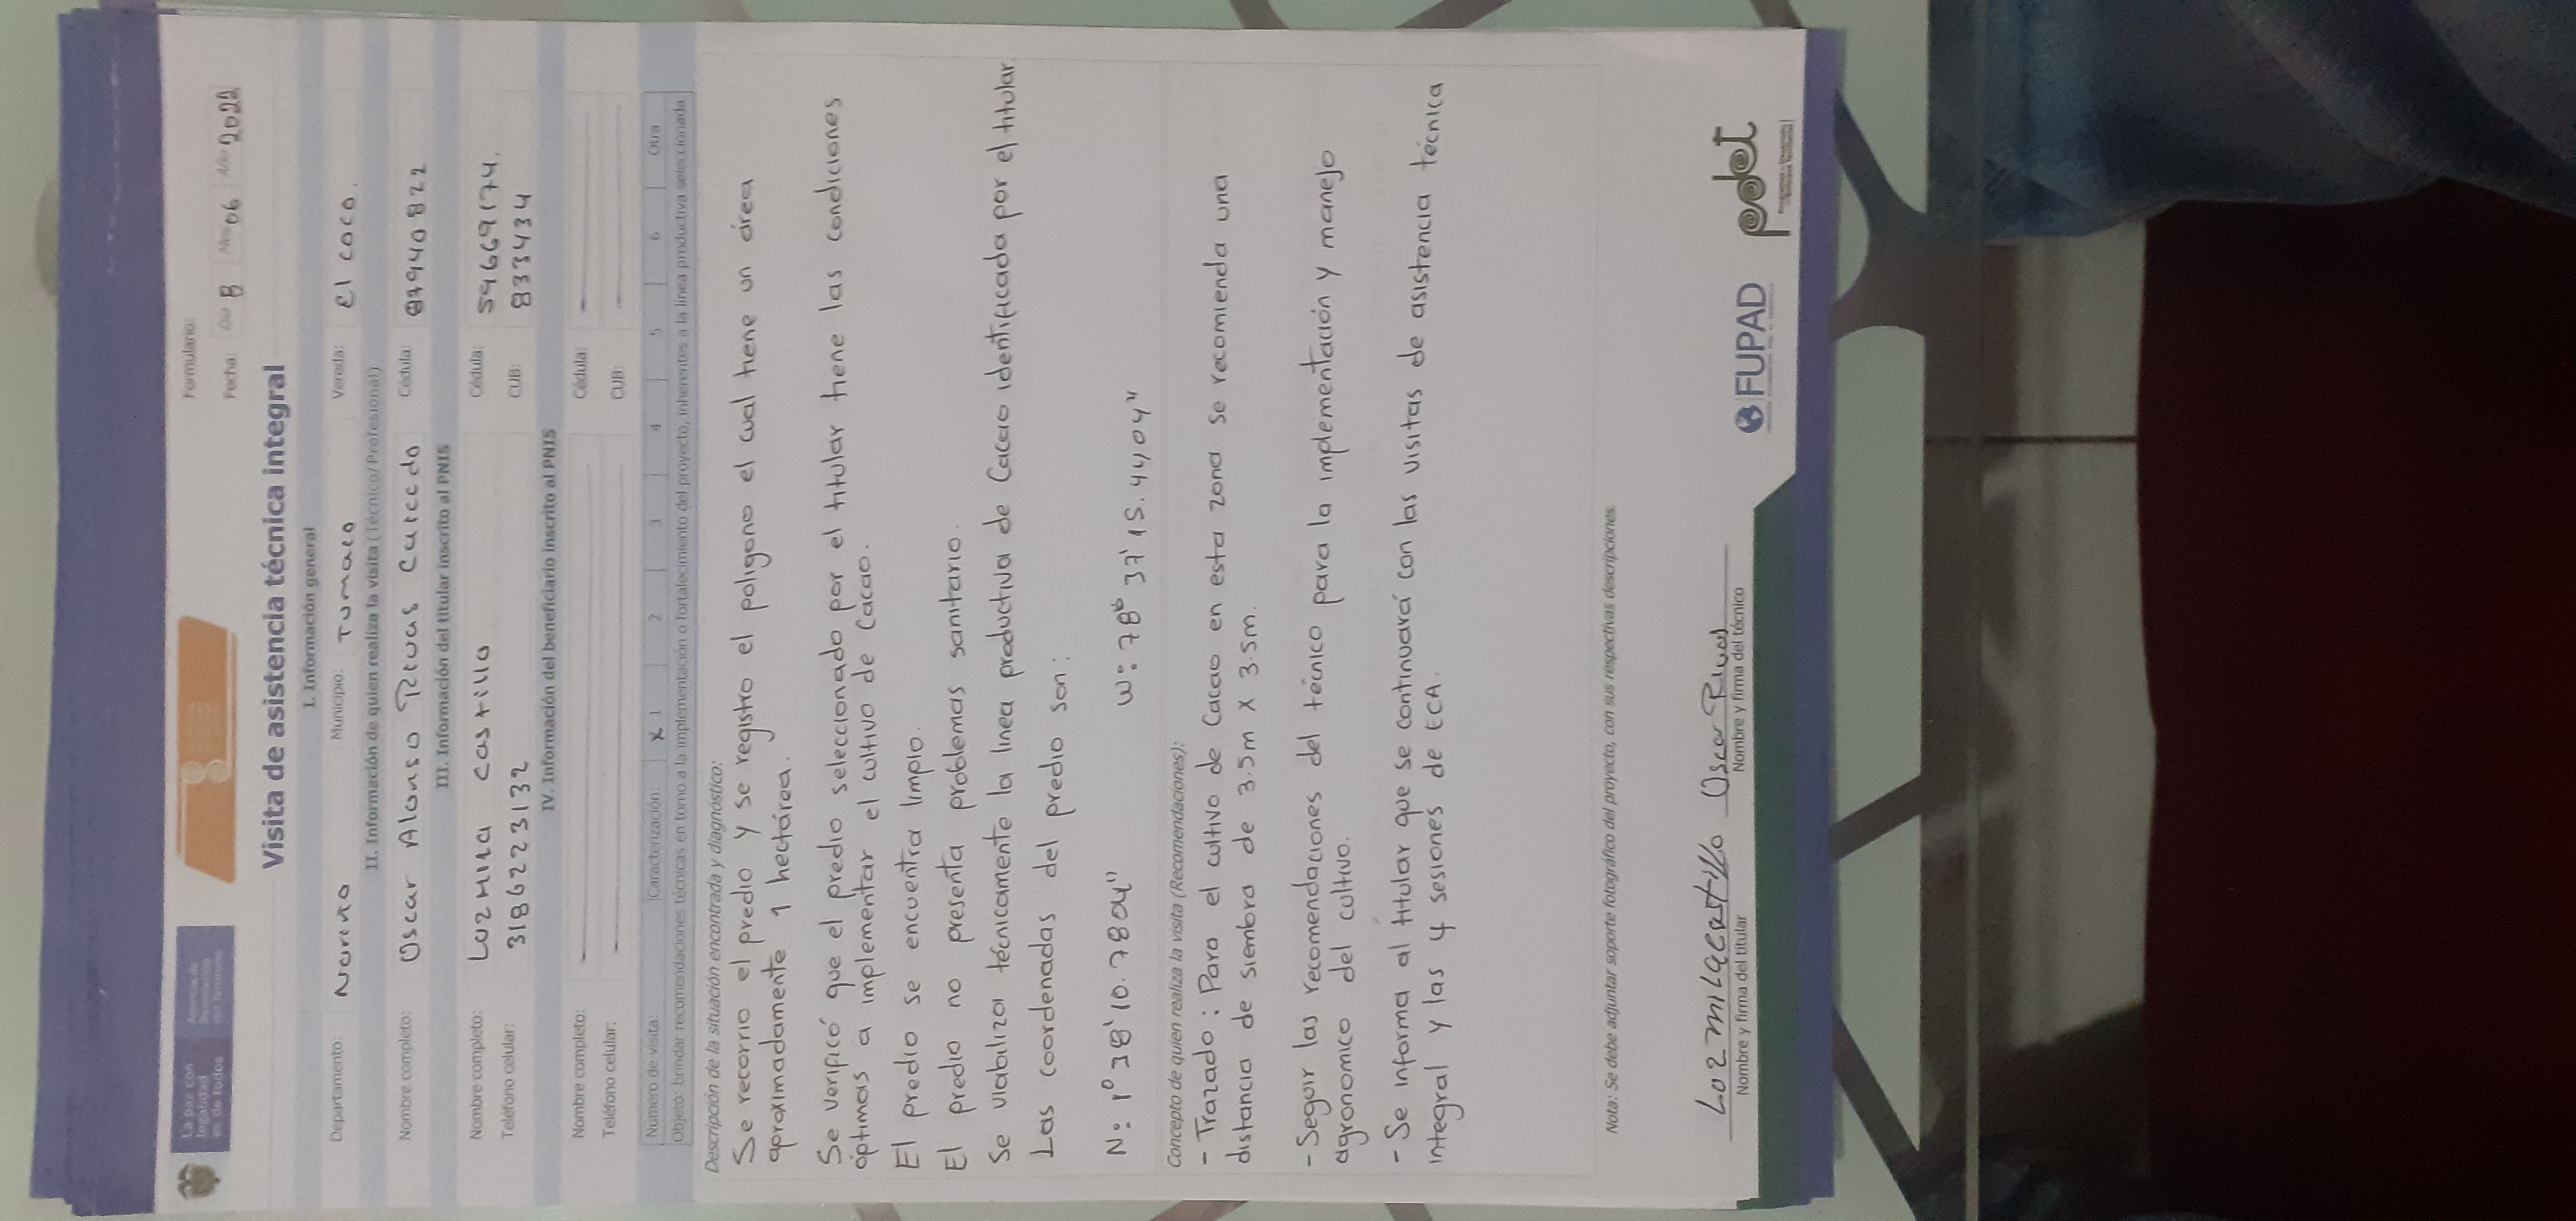 La paz con
legalidad
es de todos
Agencia de
Renovación
del Territorio
Formulario:
Fecha: Día 8 Mes 06 Año 2022
Visita de asistencia técnica integral
I. Información general
Departamento: Nariño Municipio: Tumaco Vereda: El coco.
II. Información de quien realiza la visita (Técnico/Profesional)
Nombre completo: Oscar Alonso Rivas Caicedo Cédula: 87940822
III. Información del titular inscrito al PNIS
Nombre completo: Luz Mila castillo Cédula: 59669174.
Teléfono celular: 3186223132 CUB: 833434
IV. Información del beneficiario inscrito al PNIS
Nombre completo: Cédula:
Teléfono celular: CUB:
Número de visita: Caracterización: X 1 2 3 4 5 6 Otra
Objeto: brindar recomendaciones técnicas en torno a la implementación o fortalecimiento del proyecto, inherentes a la línea productiva seleccionada
Descripción de la situación encontrada y diagnóstico:
Se recorrio el predio y se registro el poligono el cual tiene un área
aproximadamente 1 hectárea.
Se verificó que el predio seleccionado por el titular tiene las condiciones
óptimas a implementar el cultivo de Cacao.
El predio se encuentra limpio.
El predio no presenta problemas sanitario.
Se viabilizo técnicamente la linea productiva de Cacao identificada por el titular
Las coordenadas del predio son:
N: 1° 38' 10.7804" W: 78° 37' 15.4404"
Concepto de quien realiza la visita (Recomendaciones):
- Trazado: Para el cultivo de Cacao en esta zona se recomienda una
distancia de siembra de 3.5m X 3.5m.
- Seguir las recomendaciones del técnico para la implementación y manejo
agronomico del cultivo.
- Se informa al titular que se continuará con las visitas de asistencia técnica
integral y las 4 sesiones de ECA.
Nota: Se debe adjuntar soporte fotográfico del proyecto, con sus respectivas descripciones.
Luz milacastillo Oscar Rivas
Nombre y firma del titular Nombre y firma del técnico
FUPAD pdet